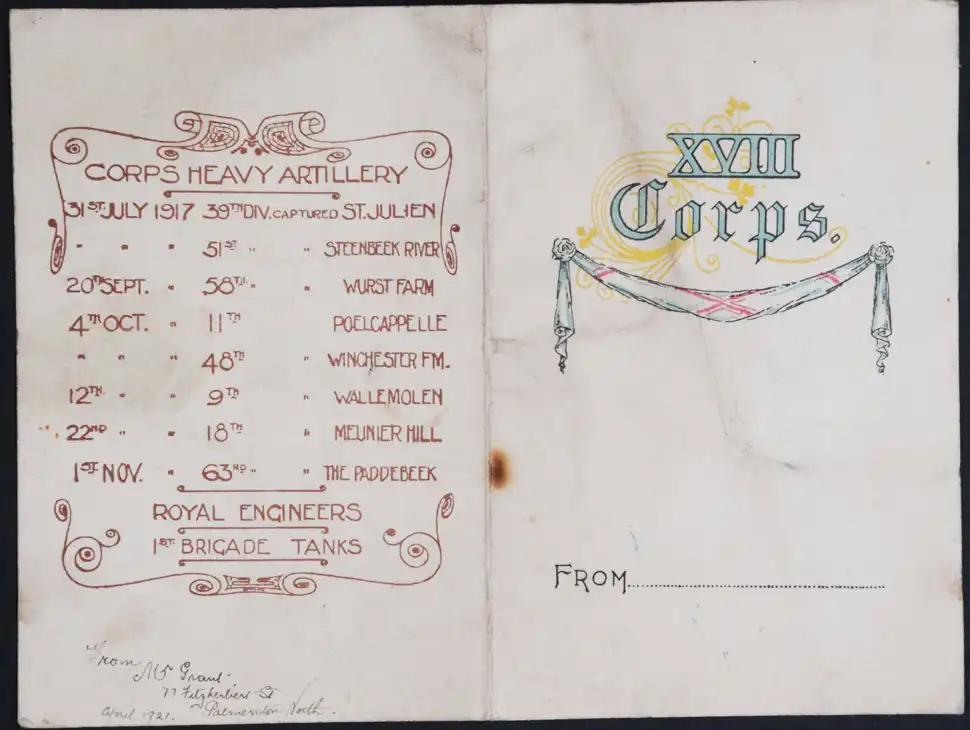 CORPS HEAVY ARTILLERY
31ST JULY 1917 39TH DIV. CAPTURED ST. JULIEN
" " " 51ST " " STEENBEEK RIVER
20TH SEPT. " 58TH " " WURST FARM
4TH OCT. " 11TH " POELCAPPELLE
" " " 48TH " WINCHESTER FM.
12TH " " 9TH " WALLEMOLEN
22ND " " 18TH " MEUNIER HILL
1ST NOV. " 63RD " " THE PADDEBEEK
ROYAL ENGINEERS
1ST BRIGADE TANKS
From Mr Grant
77 Fitzherbert St
Palmerston North.
April 1921.
XVIII
Corps.
FROM